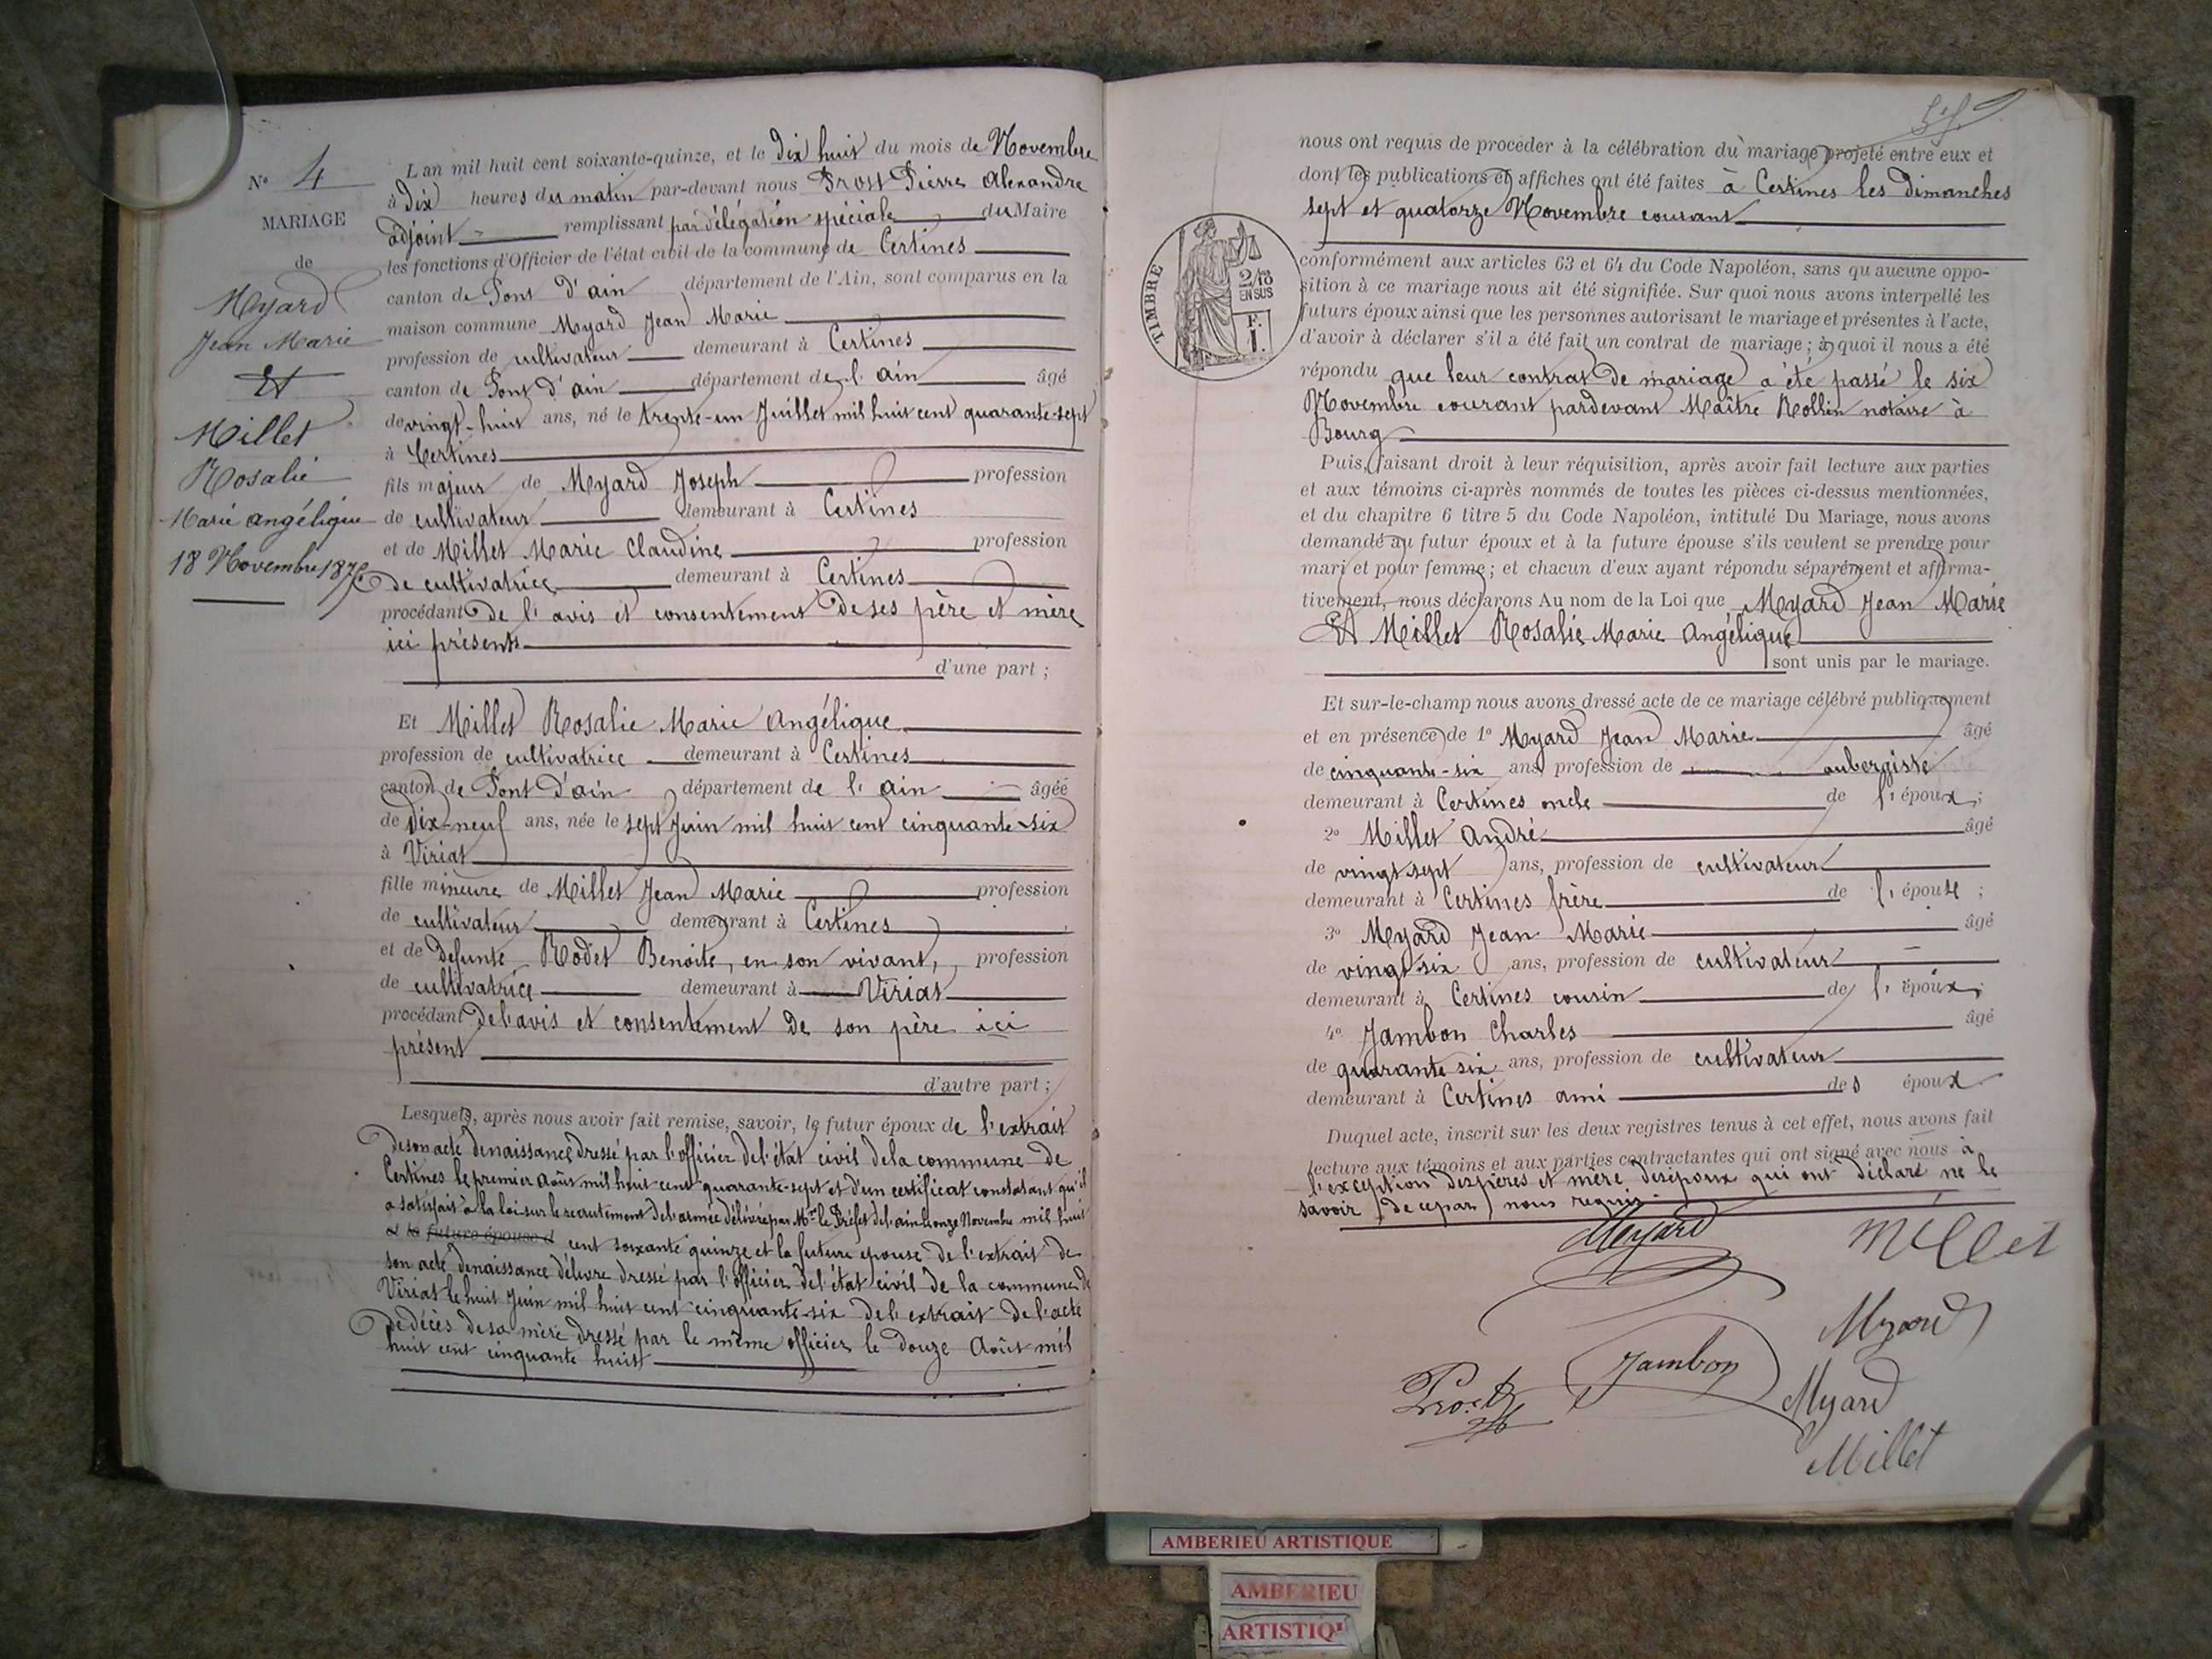 N° 4
MARIAGE
de
Myard
Jean Marie
Et
Millet
Rosalie
Marie angélique
18 Novembre 1875
L'an mil huit cent soixante-quinze, et le dix huit du mois de Novembre
à dix heures du matin par-devant nous Prost Pierre Alexandre
adjoint remplissant par délégation spéciale du Maire
les fonctions d'Officier de l'état civil de la commune de Certines
canton de Pont d'ain département de l'Ain, sont comparus en la
maison commune Myard Jean Marie
profession de cultivateur demeurant à Certines
canton de Pont d'ain département de l'ain âgé
de vingt-huit ans, né le trente-un Juillet mil huit cent quarante-sept
à Certines
fils majeur de Myard Joseph profession
de cultivateur demeurant à Certines
et de Millet Marie Claudine profession
de cultivatrice demeurant à Certines
procédant de l'avis et consentement de ses père et mère
ici présents
d'une part ;
Et Millet Rosalie Marie Angélique
profession de cultivatrice demeurant à Certines
canton de Pont d'ain département de l'ain âgée
de dix-neuf ans, née le sept Juin mil huit cent cinquante-six
à Viriat
fille mineure de Millet Jean Marie profession
de cultivateur demeurant à Certines
et de Defunte Rodet Benoite, en son vivant, profession
de cultivatrice demeurant à Viriat
procédant de l'avis et consentement de son père ici
présent
d'autre part ;
Lesquels, après nous avoir fait remise, savoir, le futur époux de l'extrait
de son acte de naissance dressé par l'officier de l'état civil de la commune de
Certines le premier Août mil huit cent quarante-sept et d'un certificat constatant qu'il
a satisfait à la loi sur le recrutement de l'armée délivré par Mr le Préfet de l'ain le onze Novembre mil huit
et la future épouse d cent soixante quinze et la future epouse de l'extrait de
son acte de naissance délivre dressé par l'officier de l'état civil de la commune de
Viriat le huit Juin mil huit cent cinquante-six de l'extrait de l'acte
de décès de sa mère dressé par le même officier le douze Août mil
huit cent cinquante huit
nous ont requis de procéder à la célébration du mariage projeté entre eux et
dont les publications et affiches ont été faites à Certines les dimanches
sept et quatorze Novembre courant
TIMBRE
2/10
EN SUS
F.
1.
conformément aux articles 63 et 64 du Code Napoléon, sans qu'aucune oppo-
sition à ce mariage nous ait été signifiée. Sur quoi nous avons interpellé les
futurs époux ainsi que les personnes autorisant le mariage et présentes à l'acte,
d'avoir à déclarer s'il a été fait un contrat de mariage ; à quoi il nous a été
répondu que leur contrat de mariage a été passé le six
Novembre courant pardevant Maître Rollin notaire à
Bourg
Puis, faisant droit à leur réquisition, après avoir fait lecture aux parties
et aux témoins ci-après nommés de toutes les pièces ci-dessus mentionnées,
et du chapitre 6 titre 5 du Code Napoléon, intitulé Du Mariage, nous avons
demandé au futur époux et à la future épouse s'ils veulent se prendre pour
mari et pour femme ; et chacun d'eux ayant répondu séparément et affirma-
tivement, nous déclarons Au nom de la Loi que Myard Jean Marie
Et Millet Rosalie Marie Angélique
sont unis par le mariage.
Et sur-le-champ nous avons dressé acte de ce mariage célébré publiquement
et en présence de 1° Myard Jean Marie âgé
de cinquante-six ans, profession de aubergiste
demeurant à Certines oncle de l'époux ;
2° Millet André âgé
de vingt sept ans, profession de cultivateur
demeurant à Certines frère de l'épouse ;
3° Myard Jean Marie âgé
de vingt six ans, profession de cultivateur
demeurant à Certines cousin de l'époux ;
4° Jambon Charles âgé
de quarante six ans, profession de cultivateur
demeurant à Certines ami des époux
Duquel acte, inscrit sur les deux registres tenus à cet effet, nous avons fait
lecture aux témoins et aux parties contractantes qui ont signé avec nous à
l'exception des pères et mère des époux qui ont déclaré ne le
savoir de ce par nous requis.
Myard
Millet
Myard
Jambon
Prost
Myard
Millet
AMBERIEU ARTISTIQUE
AMBERIEU
ARTISTIQ